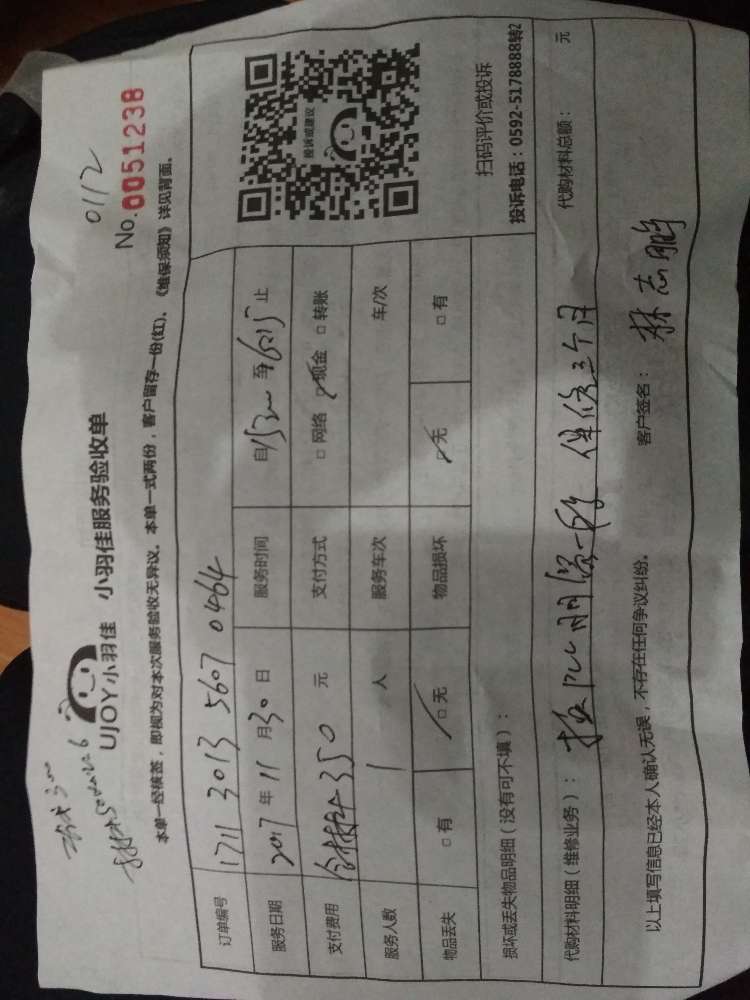 0112
UJOY小羽佳 小羽佳服务验收单
No.0051238
本单一经核签，即视为对本次服务验收无异议。本单一式两份，客户留存一份(红)。《维保须知》详见背面。
订单编号 1711 3013 5607 0464
服务日期 2017年11月30日 服务时间 自 至 止
支付费用 含材料350 元 支付方式 □网络 □现金 □转账
服务人数 1 人 服务车次 车/次
物品丢失 □有 □无 物品损坏 □无 □有
投诉或建议
扫码评价或投诉
投诉电话：0592-5178888转2
损坏或丢失物品明细（没有可不填）：
代购材料明细（维修业务）： 保修三个月 代购材料总额： 元
以上填写信息已经本人确认无误，不存在任何争议纠纷。 客户签名： 林志鹏